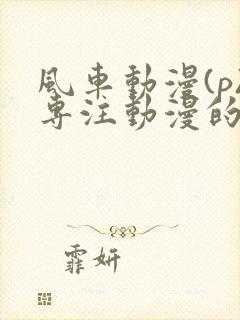 風車動漫(p
専注動漫的
霏妍